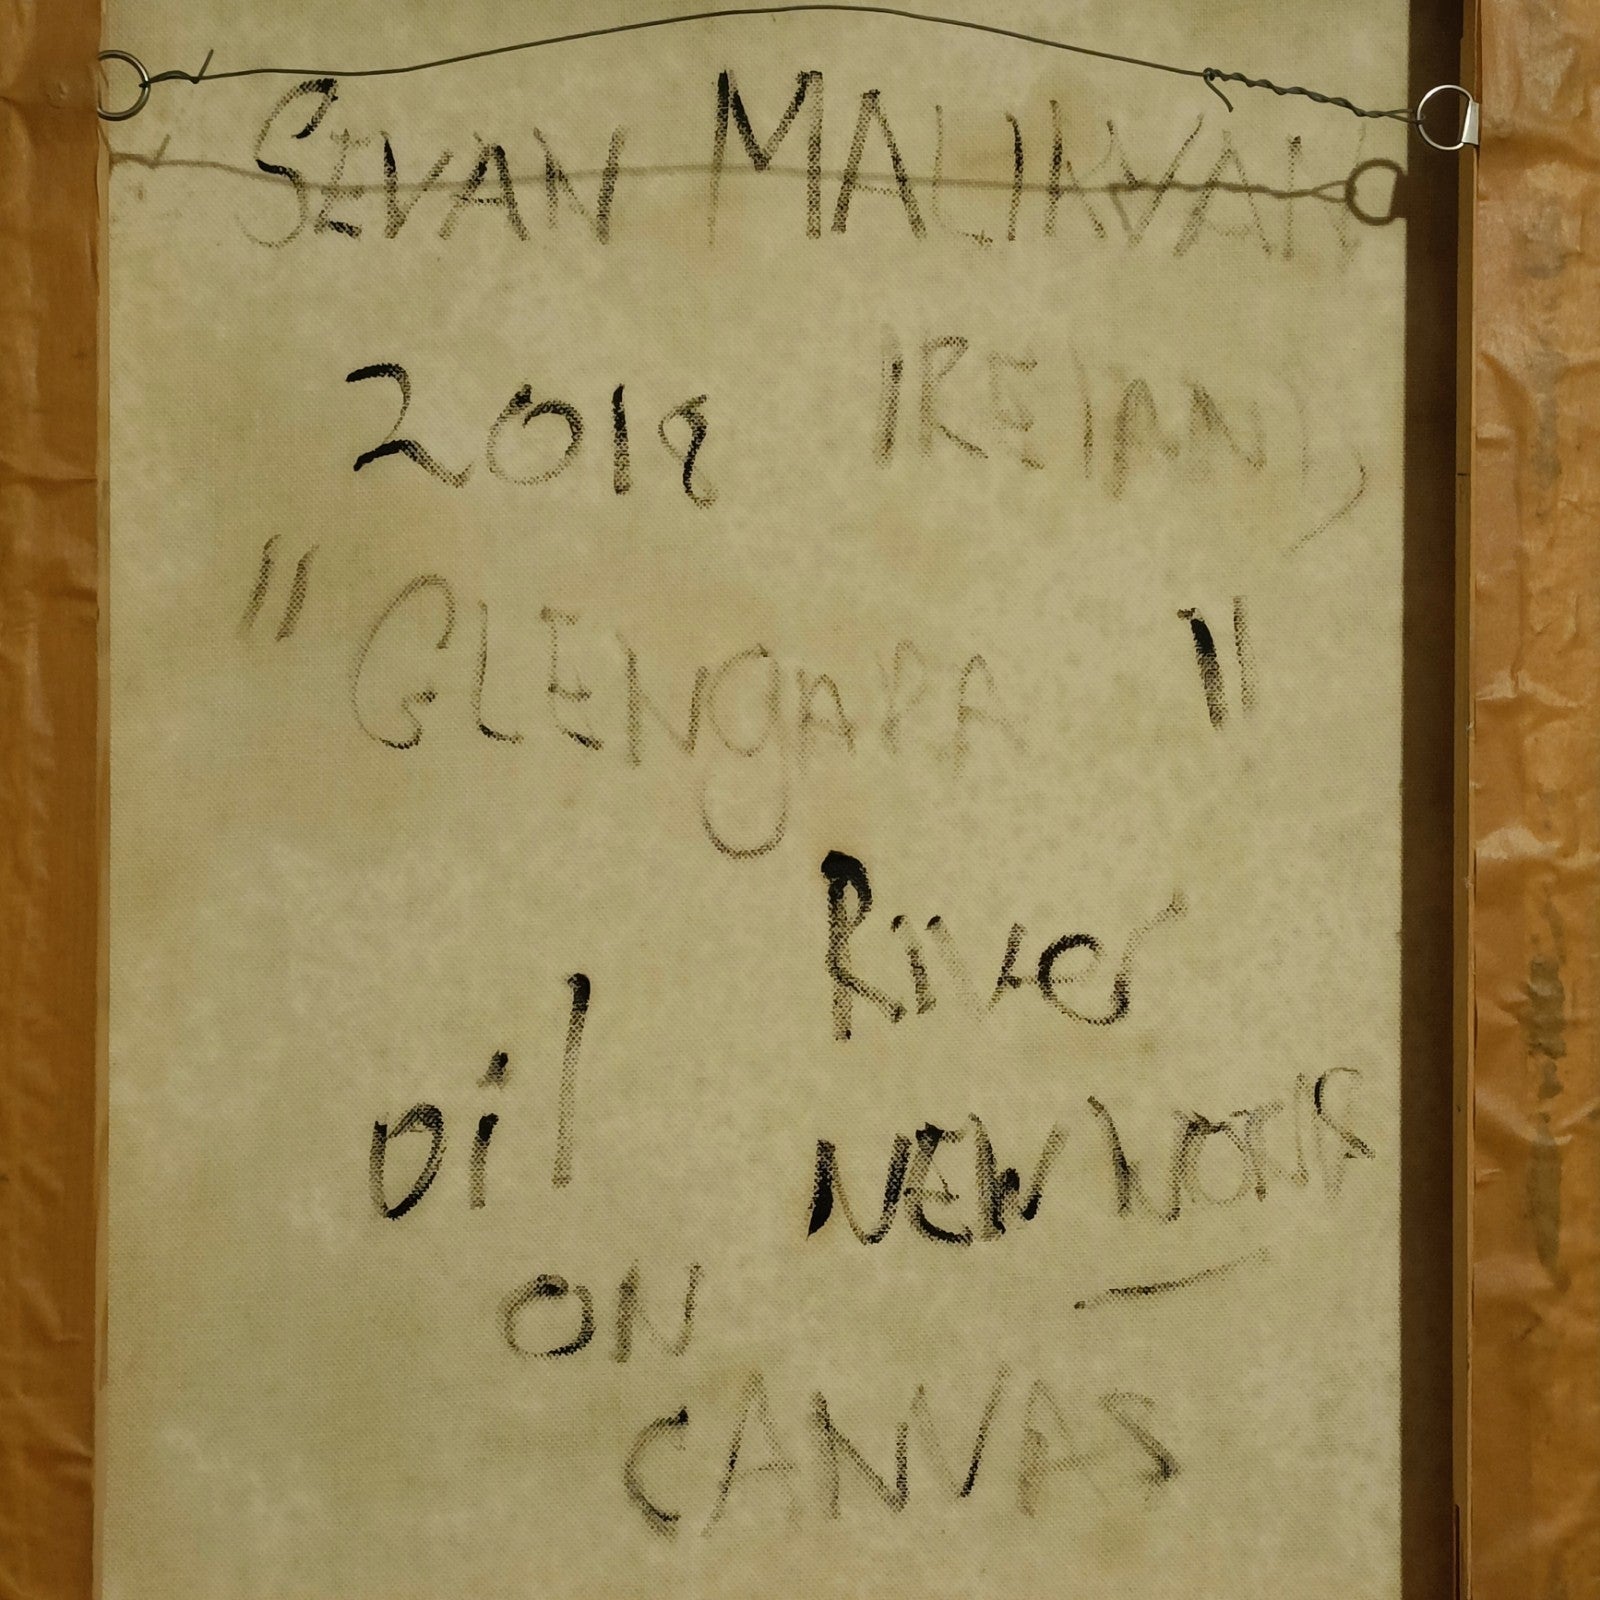 SEVAN MALIKYAN
2018 IRELAND,
"GLENGARA"
River
oil
NEW
ON
CANVAS